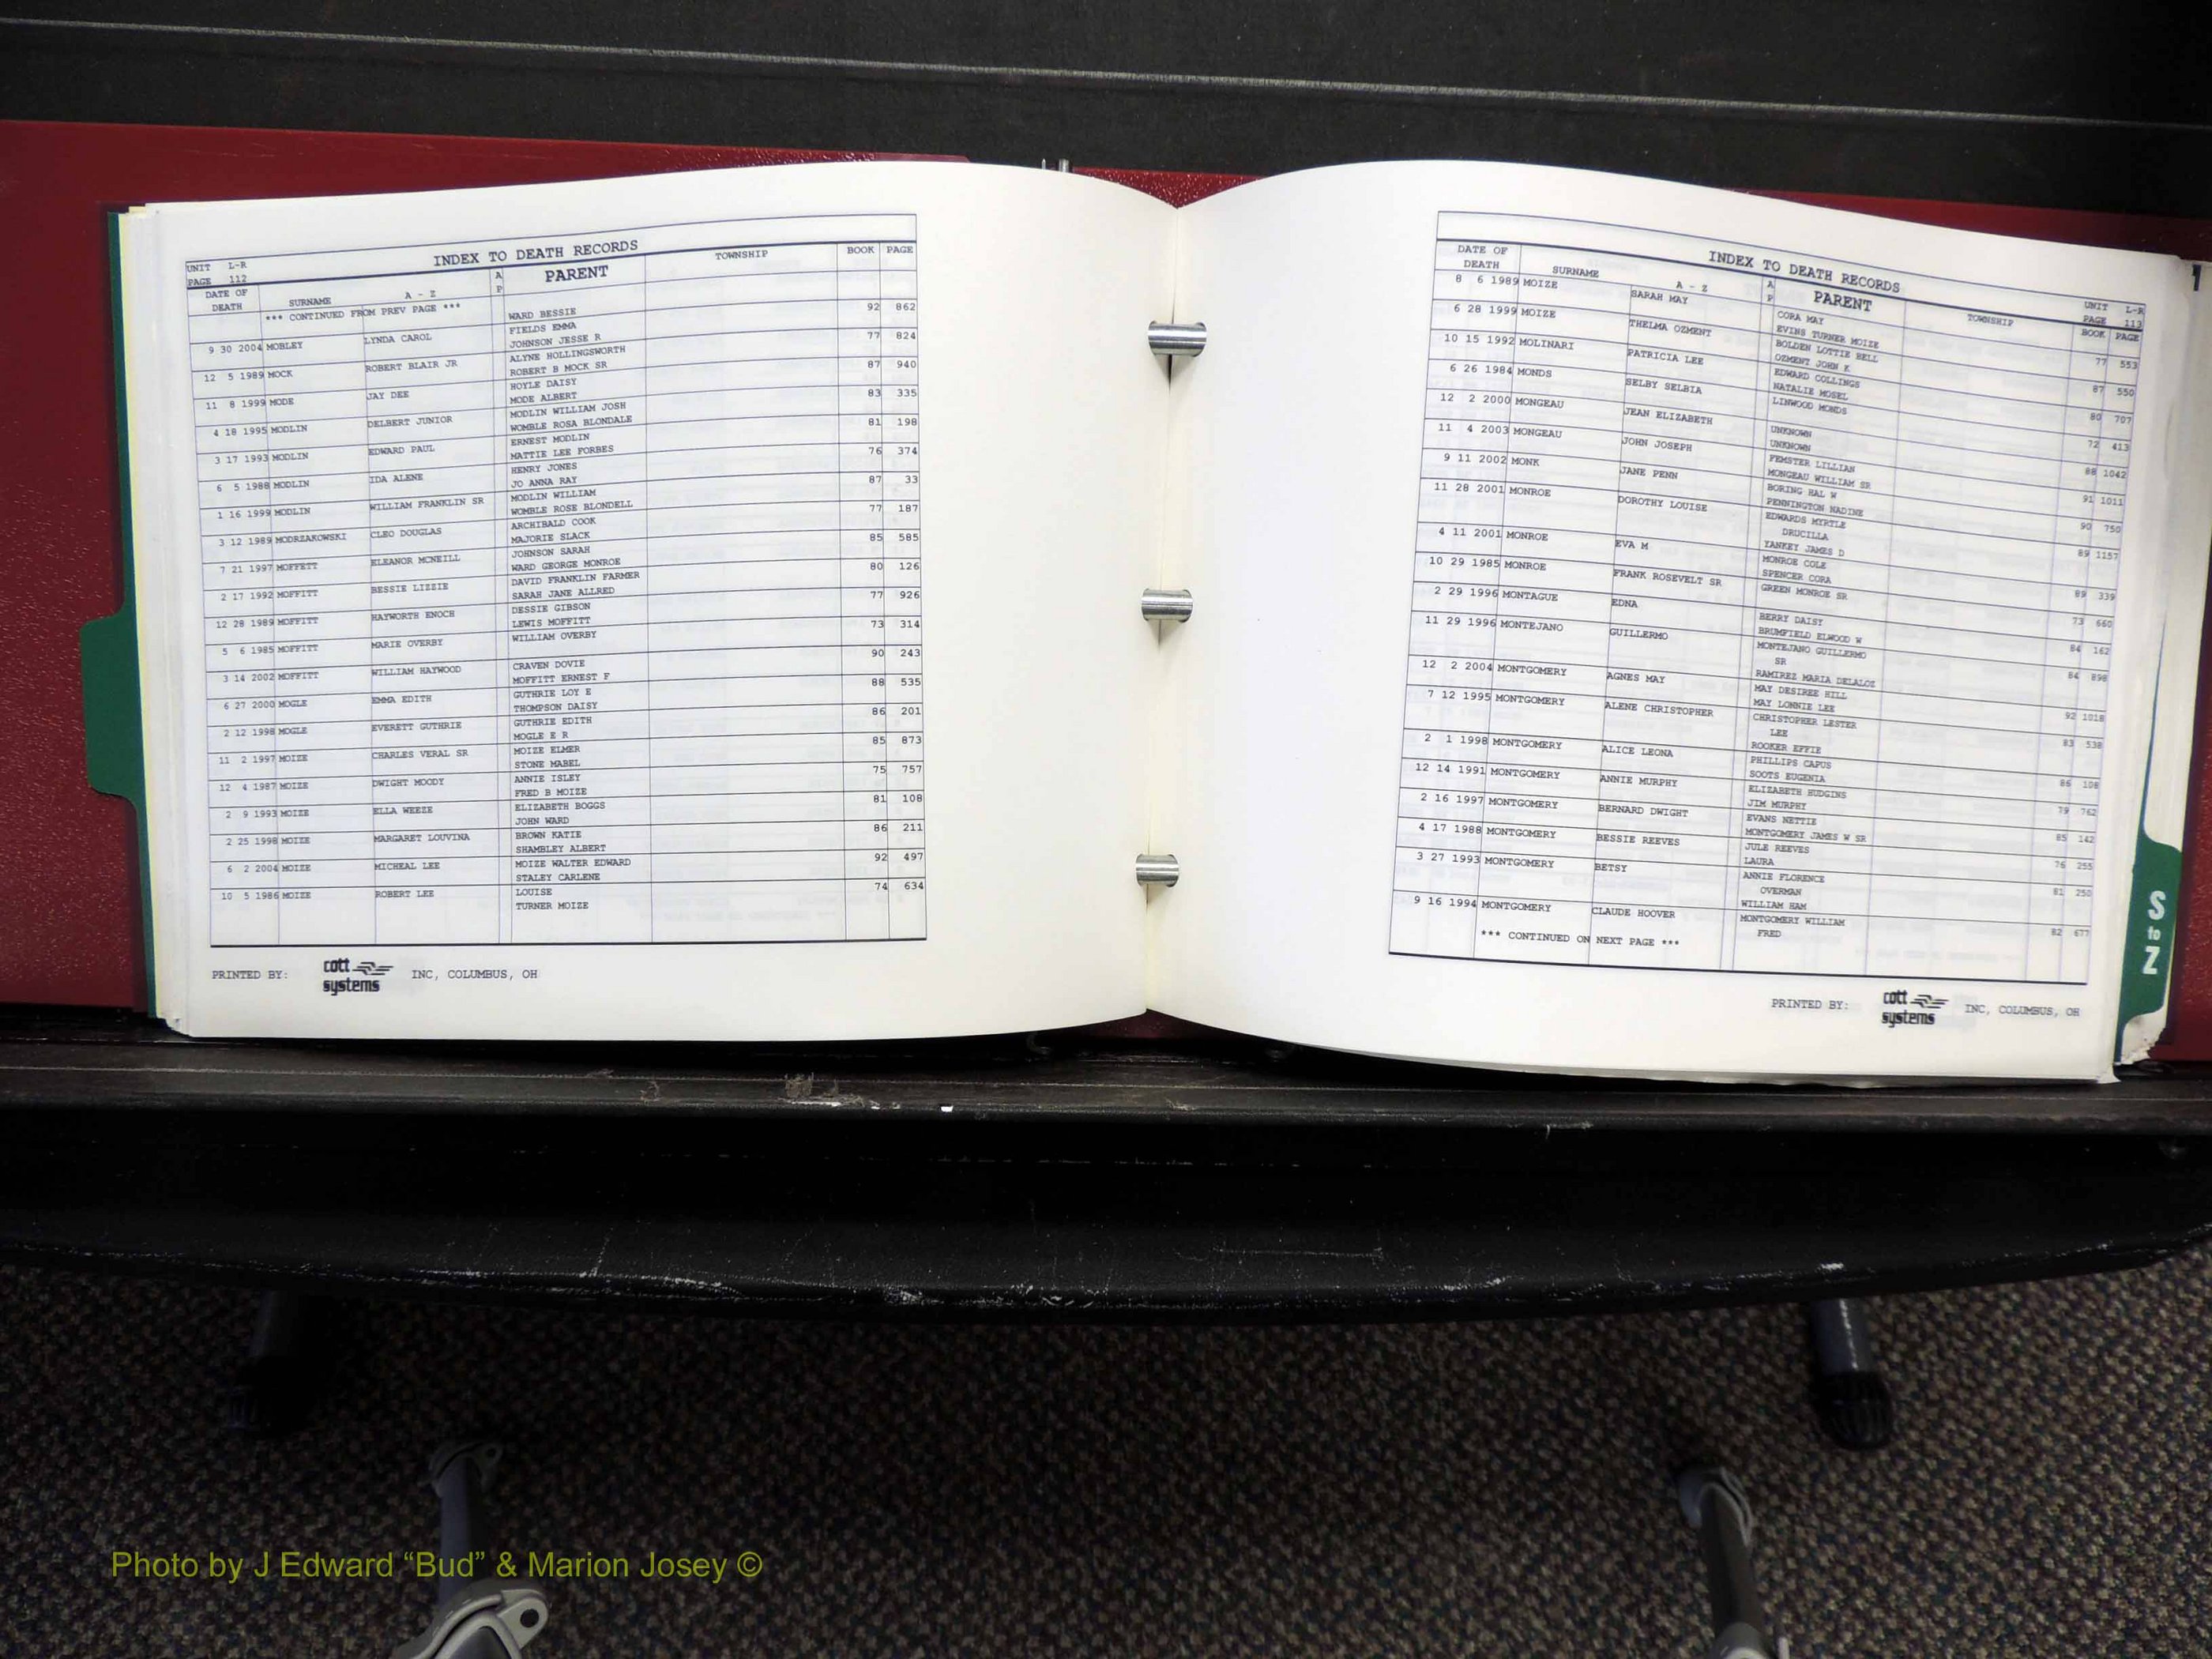 INDEX TO DEATH RECORDS
UNIT L-R
PAGE 112
DATE OF DEATH SURNAME A - Z A P PARENT TOWNSHIP BOOK PAGE
*** CONTINUED FROM PREV PAGE ***
WARD BESSIE 92 862
9 30 2004 MOBLEY LYNDA CAROL FIELDS EMMA 77 824
JOHNSON JESSE R
12 5 1989 MOCK ROBERT BLAIR JR ALYNE HOLLINGSWORTH 87 940
ROBERT B MOCK SR
11 8 1999 MODE JAY DEE HOYLE DAISY 83 335
MODE ALBERT
4 18 1995 MODLIN DELBERT JUNIOR MODLIN WILLIAM JOSH 81 198
WOMBLE ROSA BLONDALE
3 17 1993 MODLIN EDWARD PAUL ERNEST MODLIN 76 374
MATTIE LEE FORBES
6 5 1988 MODLIN IDA ALENE HENRY JONES 87 33
JO ANNA RAY
1 16 1999 MODLIN WILLIAM FRANKLIN SR MODLIN WILLIAM 77 187
WOMBLE ROSE BLONDELL
3 12 1989 MODRZAKOWSKI CLEO DOUGLAS ARCHIBALD COOK 85 585
MAJORIE SLACK
7 21 1997 MOFFETT ELEANOR MCNEILL JOHNSON SARAH 80 126
WARD GEORGE MONROE
2 17 1992 MOFFITT BESSIE LIZZIE DAVID FRANKLIN FARMER 77 926
SARAH JANE ALLRED
12 28 1989 MOFFITT HAYWORTH ENOCH DESSIE GIBSON 73 314
LEWIS MOFFITT
5 6 1985 MOFFITT MARIE OVERBY WILLIAM OVERBY 90 243
3 14 2002 MOFFITT WILLIAM HAYWOOD CRAVEN DOVIE 88 535
MOFFITT ERNEST F
6 27 2000 MOGLE EMMA EDITH GUTHRIE LOY E 86 201
THOMPSON DAISY
2 12 1998 MOGLE EVERETT GUTHRIE GUTHRIE EDITH 85 873
MOGLE E R
11 2 1997 MOIZE CHARLES VERAL SR MOIZE ELMER 75 757
STONE MABEL
12 4 1987 MOIZE DWIGHT MOODY ANNIE ISLEY 81 108
FRED B MOIZE
2 9 1993 MOIZE ELLA WEEZE ELIZABETH BOGGS 86 211
JOHN WARD
2 25 1998 MOIZE MARGARET LOUVINA BROWN KATIE 92 497
SHAMBLEY ALBERT
6 2 2004 MOIZE MICHEAL LEE MOIZE WALTER EDWARD 74 634
STALEY CARLENE
10 5 1986 MOIZE ROBERT LEE LOUISE
TURNER MOIZE
PRINTED BY: cott systems INC, COLUMBUS, OH
INDEX TO DEATH RECORDS
UNIT L-R
PAGE 113
DATE OF DEATH SURNAME A - Z A P PARENT TOWNSHIP BOOK PAGE
8 6 1989 MOIZE SARAH MAY CORA MAY 77 553
EVINS TURNER MOIZE
6 28 1999 MOIZE THELMA OZMENT BOLDEN LOTTIE BELL 87 550
OZMENT JOHN K
10 15 1992 MOLINARI PATRICIA LEE EDWARD COLLINGS 80 707
NATALIE MOSEL
6 26 1984 MONDS SELBY SELBIA LINWOOD MONDS 72 413
12 2 2000 MONGEAU JEAN ELIZABETH UNKNOWN 88 1042
UNKNOWN
11 4 2003 MONGEAU JOHN JOSEPH FEMSTER LILLIAN 91 1011
MONGEAU WILLIAM SR
9 11 2002 MONK JANE PENN BORING HAL W 90 750
PENNINGTON NADINE
11 28 2001 MONROE DOROTHY LOUISE EDWARDS MYRTLE 89 1157
DRUCILLA
YANKEY JAMES D
4 11 2001 MONROE EVA M MONROE COLE 89 339
SPENCER CORA
10 29 1985 MONROE FRANK ROSEVELT SR GREEN MONROE SR 73 660
2 29 1996 MONTAGUE EDNA BERRY DAISY 84 162
BRUMFIELD ELWOOD W
11 29 1996 MONTEJANO GUILLERMO MONTEJANO GUILLERMO 84 898
SR
RAMIREZ MARIA DELALOZ
12 2 2004 MONTGOMERY AGNES MAY MAY DESIREE HILL 92 1018
MAY LONNIE LEE
7 12 1995 MONTGOMERY ALENE CHRISTOPHER CHRISTOPHER LESTER 83 538
LEE
ROOKER EFFIE
2 1 1998 MONTGOMERY ALICE LEONA PHILLIPS CAPUS 86 108
SOOTS EUGENIA
12 14 1991 MONTGOMERY ANNIE MURPHY ELIZABETH HUDGINS 79 762
JIM MURPHY
2 16 1997 MONTGOMERY BERNARD DWIGHT EVANS NETTIE 85 142
MONTGOMERY JAMES W SR
4 17 1988 MONTGOMERY BESSIE REEVES JULE REEVES 76 255
LAURA
3 27 1993 MONTGOMERY BETSY ANNIE FLORENCE 81 250
OVERMAN
WILLIAM HAM
9 16 1994 MONTGOMERY CLAUDE HOOVER MONTGOMERY WILLIAM 82 677
FRED
*** CONTINUED ON NEXT PAGE ***
PRINTED BY: cott systems INC, COLUMBUS, OH
S to Z
Photo by J Edward “Bud” & Marion Josey ©